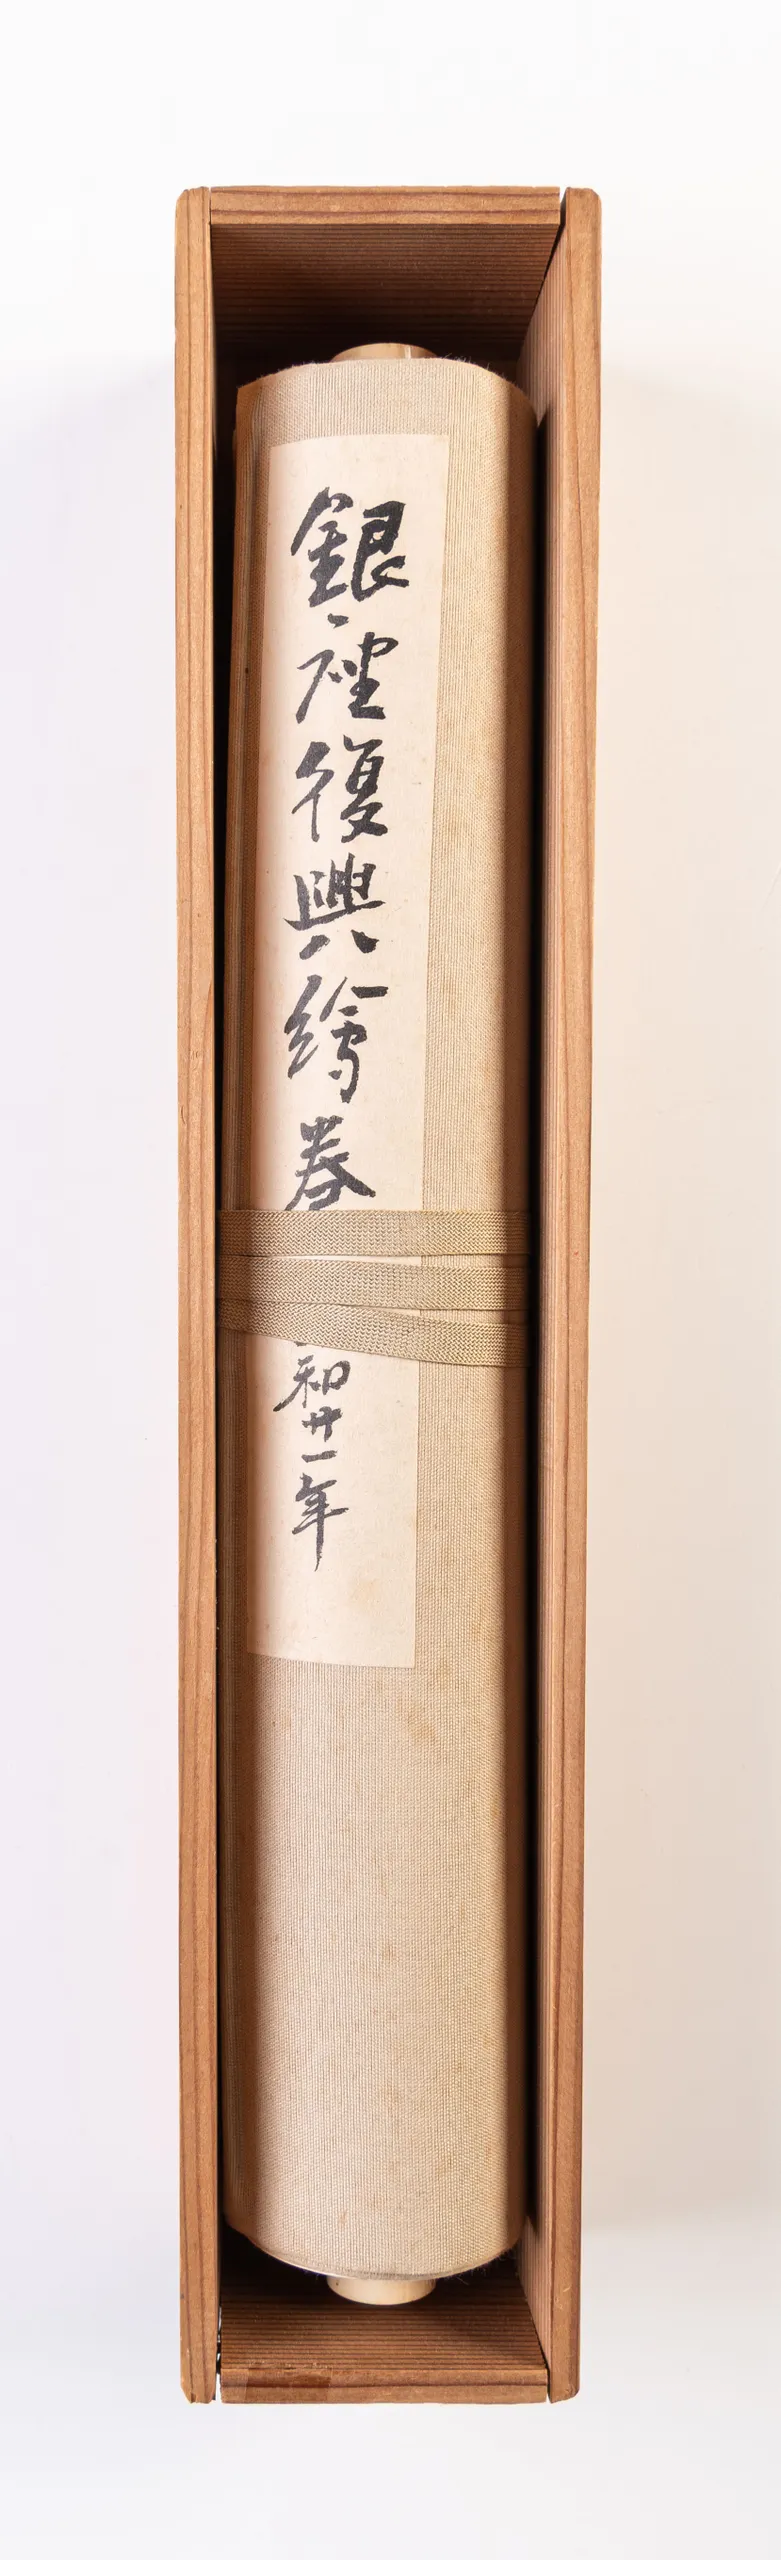 銀座復興繪卷
和廿一年